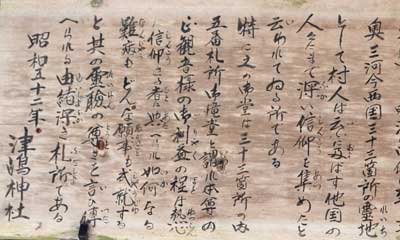 奥三河今西国三十三箇所の霊地
として村人は云ふに及ばず他国の
人々まで深い信仰を集めたと
云われてゐる所である
特に又の御堂は三十三箇所の内
五番札所御滝堂と謂れ本尊の
正観音様の御利益の程は熱心
に信仰さる者は如何なる
難病もどんな願事も成就する
と其の霊験の尊さを言ひ尊
へられる由緒深き札所である
昭和五十二年
津嶋神社